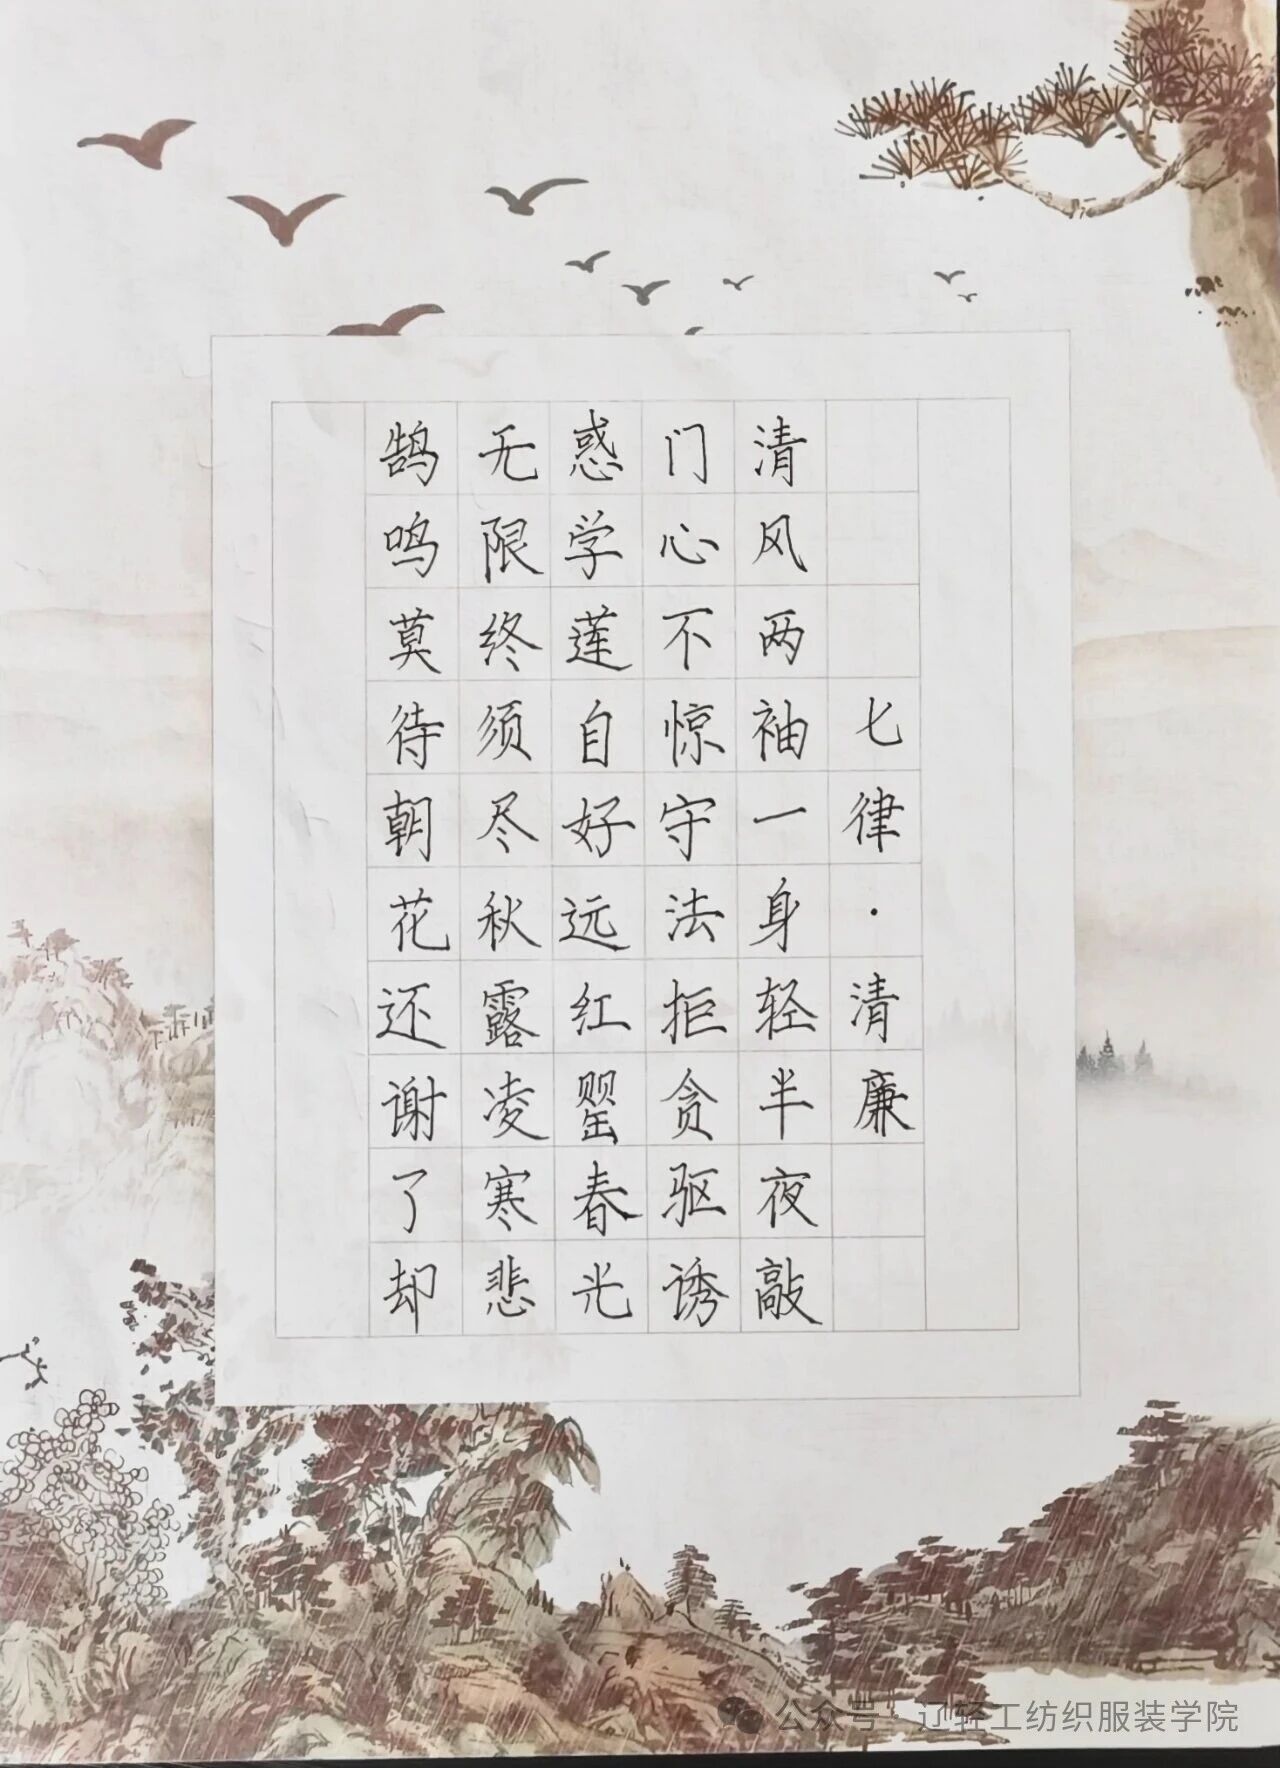 七律·清廉
清风两袖一身轻半夜敲
门心不惊守法拒贪驱诱
惑学莲自好远红罂春光
无限终须尽秋露凌寒悲
鹄鸣莫待朝花还谢了却
公众号·辽轻工纺织服装学院